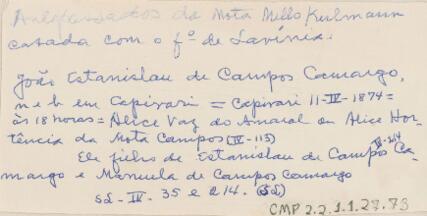 Antepassados da Mota Mello Kuhlmann
casada com o fº de Lavínia.
João Estanislau de Campos Camargo,
n e b em Capivari = Capivari 11-IV-1874=
às 18 horas = Alice Vaz do Amaral ou Alice Hor-
tência da Mota Campos (IV-115)
Ele filho de Estanislau de Campos Ca-
margo e Manuela de Campos Camargo
SL-IV. 35 e 214. (SL)
CMP 2.2.1.1.27.73